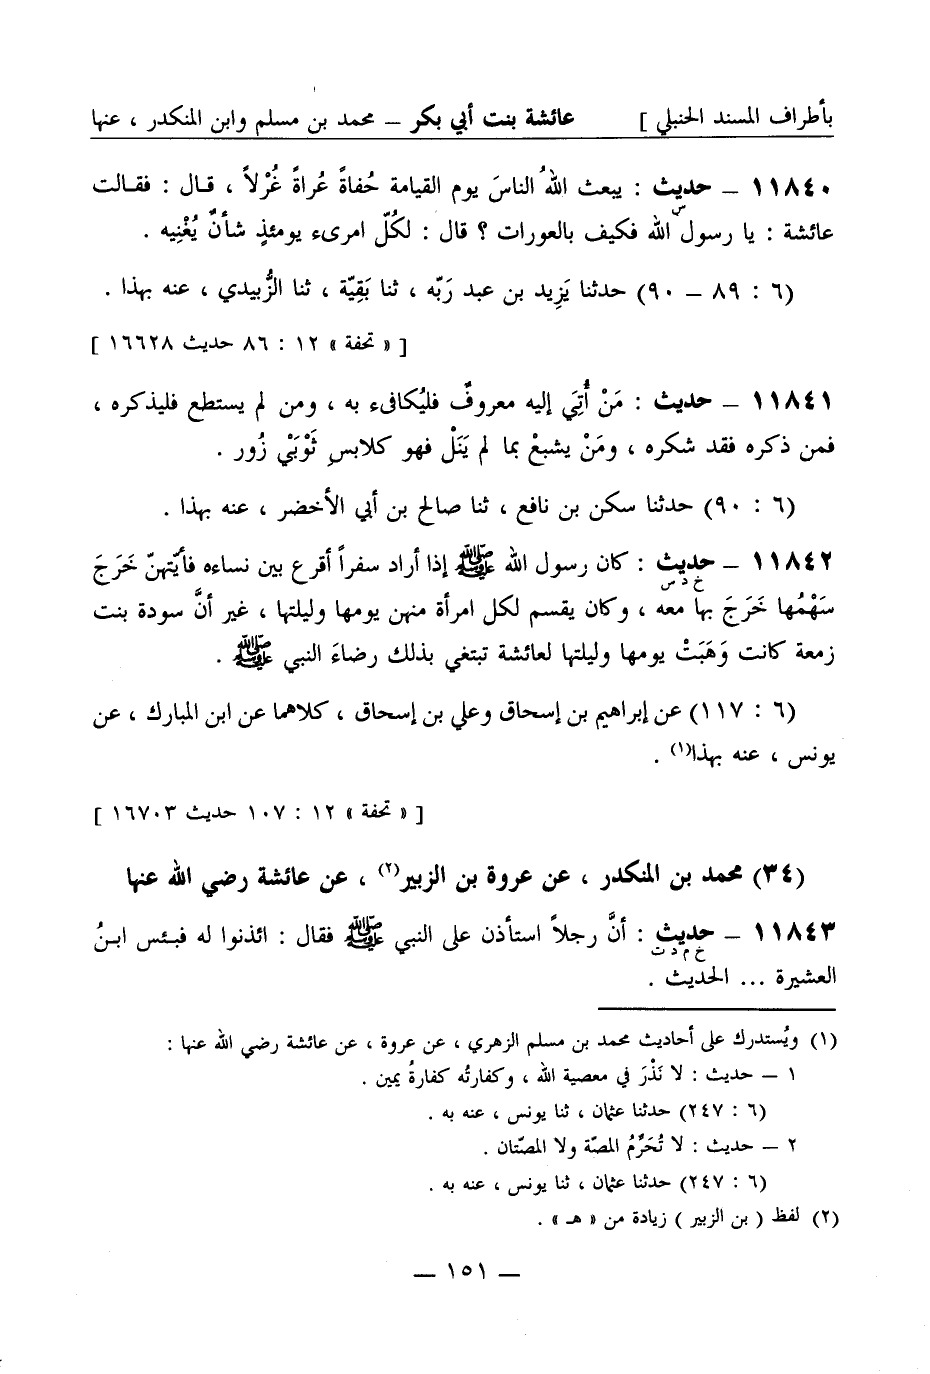 بأطراف المسند الحنبلي ] عائشة بنت أبي بكر ــ محمد بن مسلم وابن المنكدر ، عنها
١١٨٤٠ ــ حديث : يبعث اللهُ الناسَ يوم القيامة حُفاةً عُراةً غُرْلاً ، قال : فقالت
س
عائشة : يا رسول الله فكيف بالعورات ؟ قال : لكُلّ امرىء يومئذٍ شأنٌ يُغْنِيه .
(٦ : ٨٩ ــ ٩٠) حدثنا يَزِيد بن عبد رَبّه ، ثنا بَقِيّة ، ثنا الزُّبيدي ، عنه بهذا .
[ « تحفة » ١٢ : ٨٦ حديث ١٦٦٢٨ ]
١١٨٤١ ــ حديث : مَنْ أُتِيَ إليه معروفٌ فليُكافىء به ، ومن لم يستطع فليذكره ،
فمن ذكره فقد شكره ، ومَنْ يشبعْ بما لم يَنَلْ فهو كلابسِ ثَوْبَيْ زُور .
(٦ : ٩٠) حدثنا سكن بن نافع ، ثنا صالح بن أبي الأخضر ، عنه بهذا .
١١٨٤٢ ــ حديث : كان رسول الله ﷺ إذا أراد سفراً أقرع بين نساءه فأيّتهنّ خَرَجَ
خ د س
سَهْمُها خَرَجَ بها معه ، وكان يقسم لكل امرأة منهن يومها وليلتها ، غير أنَّ سودة بنت
زمعة كانت وَهَبَتْ يومها وليلتها لعائشة تبتغي بذلك رضاءَ النبي ﷺ .
(٦ : ١١٧) عن إبراهيم بن إسحاق وعلي بن إسحاق ، كلاهما عن ابن المبارك ، عن
يونس ، عنه بهذا(١) .
[ « تحفة » ١٢ : ١٠٧ حديث ١٦٧٠٣ ]
(٣٤) محمد بن المنكدر ، عن عروة بن الزبير(٢) ، عن عائشة رضي الله عنها
١١٨٤٣ ــ حديث : أنَّ رجلاً استأذن على النبي ﷺ فقال : ائذنوا له فبئس ابنُ
خ م د ت
العشيرة ... الحديث .
(١) ويُستدرك على أحاديث محمد بن مسلم الزهري ، عن عروة ، عن عائشة رضي الله عنها :
١ ــ حديث : لا نَذْرَ في معصية الله ، وكفارتُه كفارةُ يمين .
(٦ : ٢٤٧) حدثنا عثمان ، ثنا يونس ، عنه به .
٢ ــ حديث : لا تُحَرِّمُ المصّة ولا المصّتان .
(٦ : ٢٤٧) حدثنا عثمان ، ثنا يونس ، عنه به .
(٢) لفظ ( بن الزبير ) زيادة من « هـ » .
ــ ١٥١ ــ